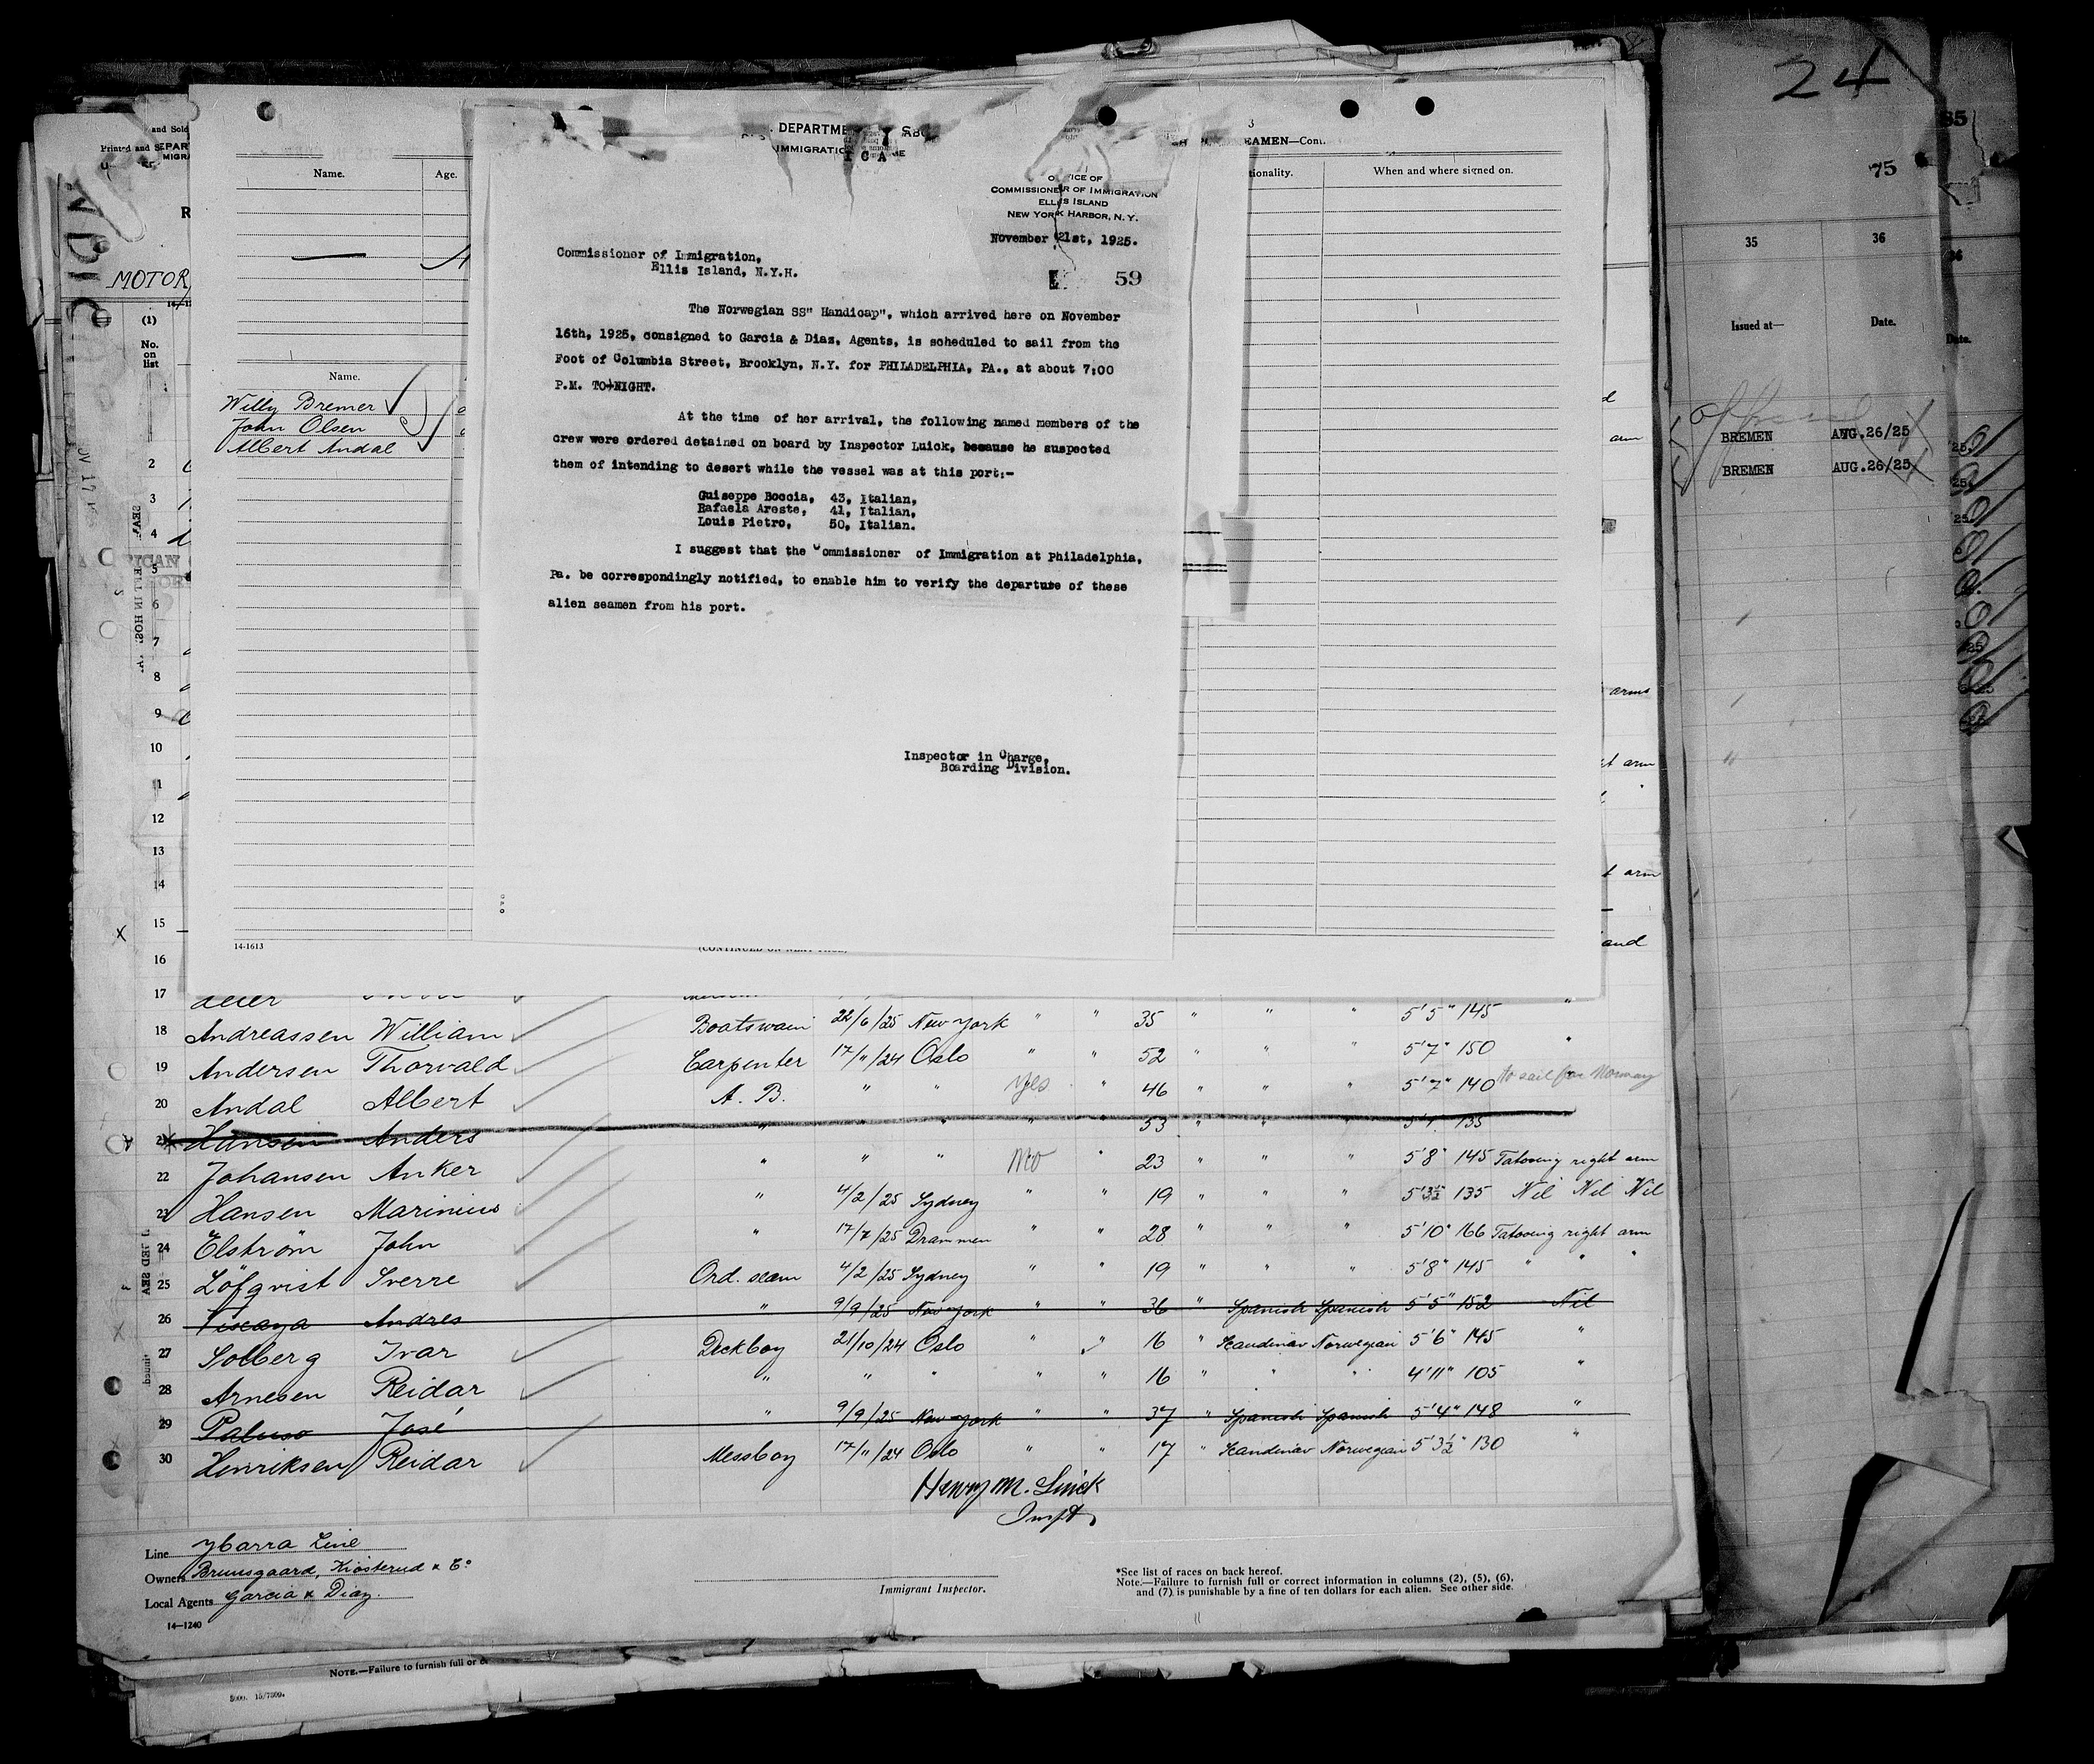 24
75
35
36
Issued at—
Date.
BREMEN AUG.26/25
BREMEN AUG.26/25
and Sold
Printed and
MOTOR
(1)
No.
on
list
Name.
Age.
SEAMEN—Con.
When and where signed on.
Name.
Willy Bremer
John Olsen
Albert Andal
IMMIGRATION
OFFICE OF
COMMISSIONER OF IMMIGRATION
ELLIS ISLAND
NEW YORK HARBOR, N.Y.
November 21st, 1925.
Commissioner of Immigration,
Ellis Island, N.Y.H.
59
The Norwegian SS" Handicap", which arrived here on November
16th, 1925, consigned to Garcia & Dias, Agents, is scheduled to sail from the
Foot of Columbia Street, Brooklyn, N.Y. for PHILADELPHIA, PA., at about 7:00
P.M. TO-NIGHT.
At the time of her arrival, the following named members of the
crew were ordered detained on board by Inspector Luick, because he suspected
them of intending to desert while the vessel was at this port:-
Guiseppe Boccia, 43, Italian,
Rafaela Areste, 41, Italian,
Louis Pietro, 50, Italian.
I suggest that the Commissioner of Immigration at Philadelphia,
Pa. be correspondingly notified, to enable him to verify the departure of these
alien seamen from his port.
Inspector in Charge,
Boarding Division.
14-1613
2
3
4
5
6
7
8
9
10
11
12
13
14
15
16
17
18 Andreassen William Boatswain 22/6/25 New York " " 35 " " " 5'5" 145 "
19 Andersen Thorvald Carpenter 17/11/24 Oslo " " 52 " " " 5'7" 150 "
20 Andal Albert A. B. " " yes " 46 " " " 5'7" 140 to sail for Norway
21 Hansen Anders " " " " 53 " " " 135
22 Johansen Anker " " " No " 23 " " " 5'8" 145 Tatooing right arm
23 Hansen Marinius " 4/2/25 Sydney " " 19 " " " 5'3½" 135 Nil Nil Nil
24 Elström John " 17/7/25 Drammen " " 28 " " " 5'10" 166 Tatooing right arm
25 Löfqvist Sverre Ord. seam 4/2/25 Sydney " " 19 " " " 5'8" 145 " "
26 Andres " 9/9/25 New York " " 36 " Spanish Spanish 5'5" 152 Nil
27 Solberg Ivar Deckboy 21/10/24 Oslo " 16 " Scandinav Norwegian 5'6" 145 "
28 Arnesen Reidar " " " " " 16 " " " 4'11" 105 "
29 José " 9/9/25 New York " " 37 " Spanish Spanish 5'4" 148 "
30 Henriksen Reidar Messboy 17/11/24 Oslo " " 17 " Scandinav Norwegian 5'3½" 130
Henry M. Luick
Inspt.
Line Ybarra Line
Owners Bruusgaard, Kiøsterud & Co
Local Agents Garcia & Diaz.
14—1240
Immigrant Inspector.
*See list of races on back hereof.
Note.—Failure to furnish full or correct information in columns (2), (5), (6),
and (7) is punishable by a fine of ten dollars for each alien. See other side.
NOTE.—Failure to furnish full or